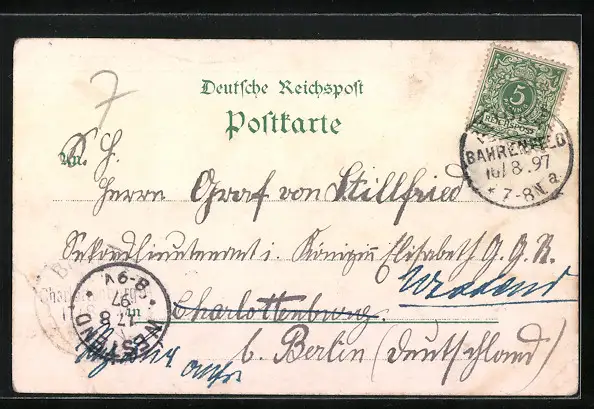 7
Deutsche Reichspost
Postkarte
5
REICHSPOST
BAHRENFELD
16/8.97
* 7-8N. a
An S. H.
Herrn Graf von Stillfried
Sekondlieutenant i. Königin Elisabeth G. G. R.
in Charlottenburg
b. Berlin (Deutschland)
WESTEND
17 8
97
8-9V.